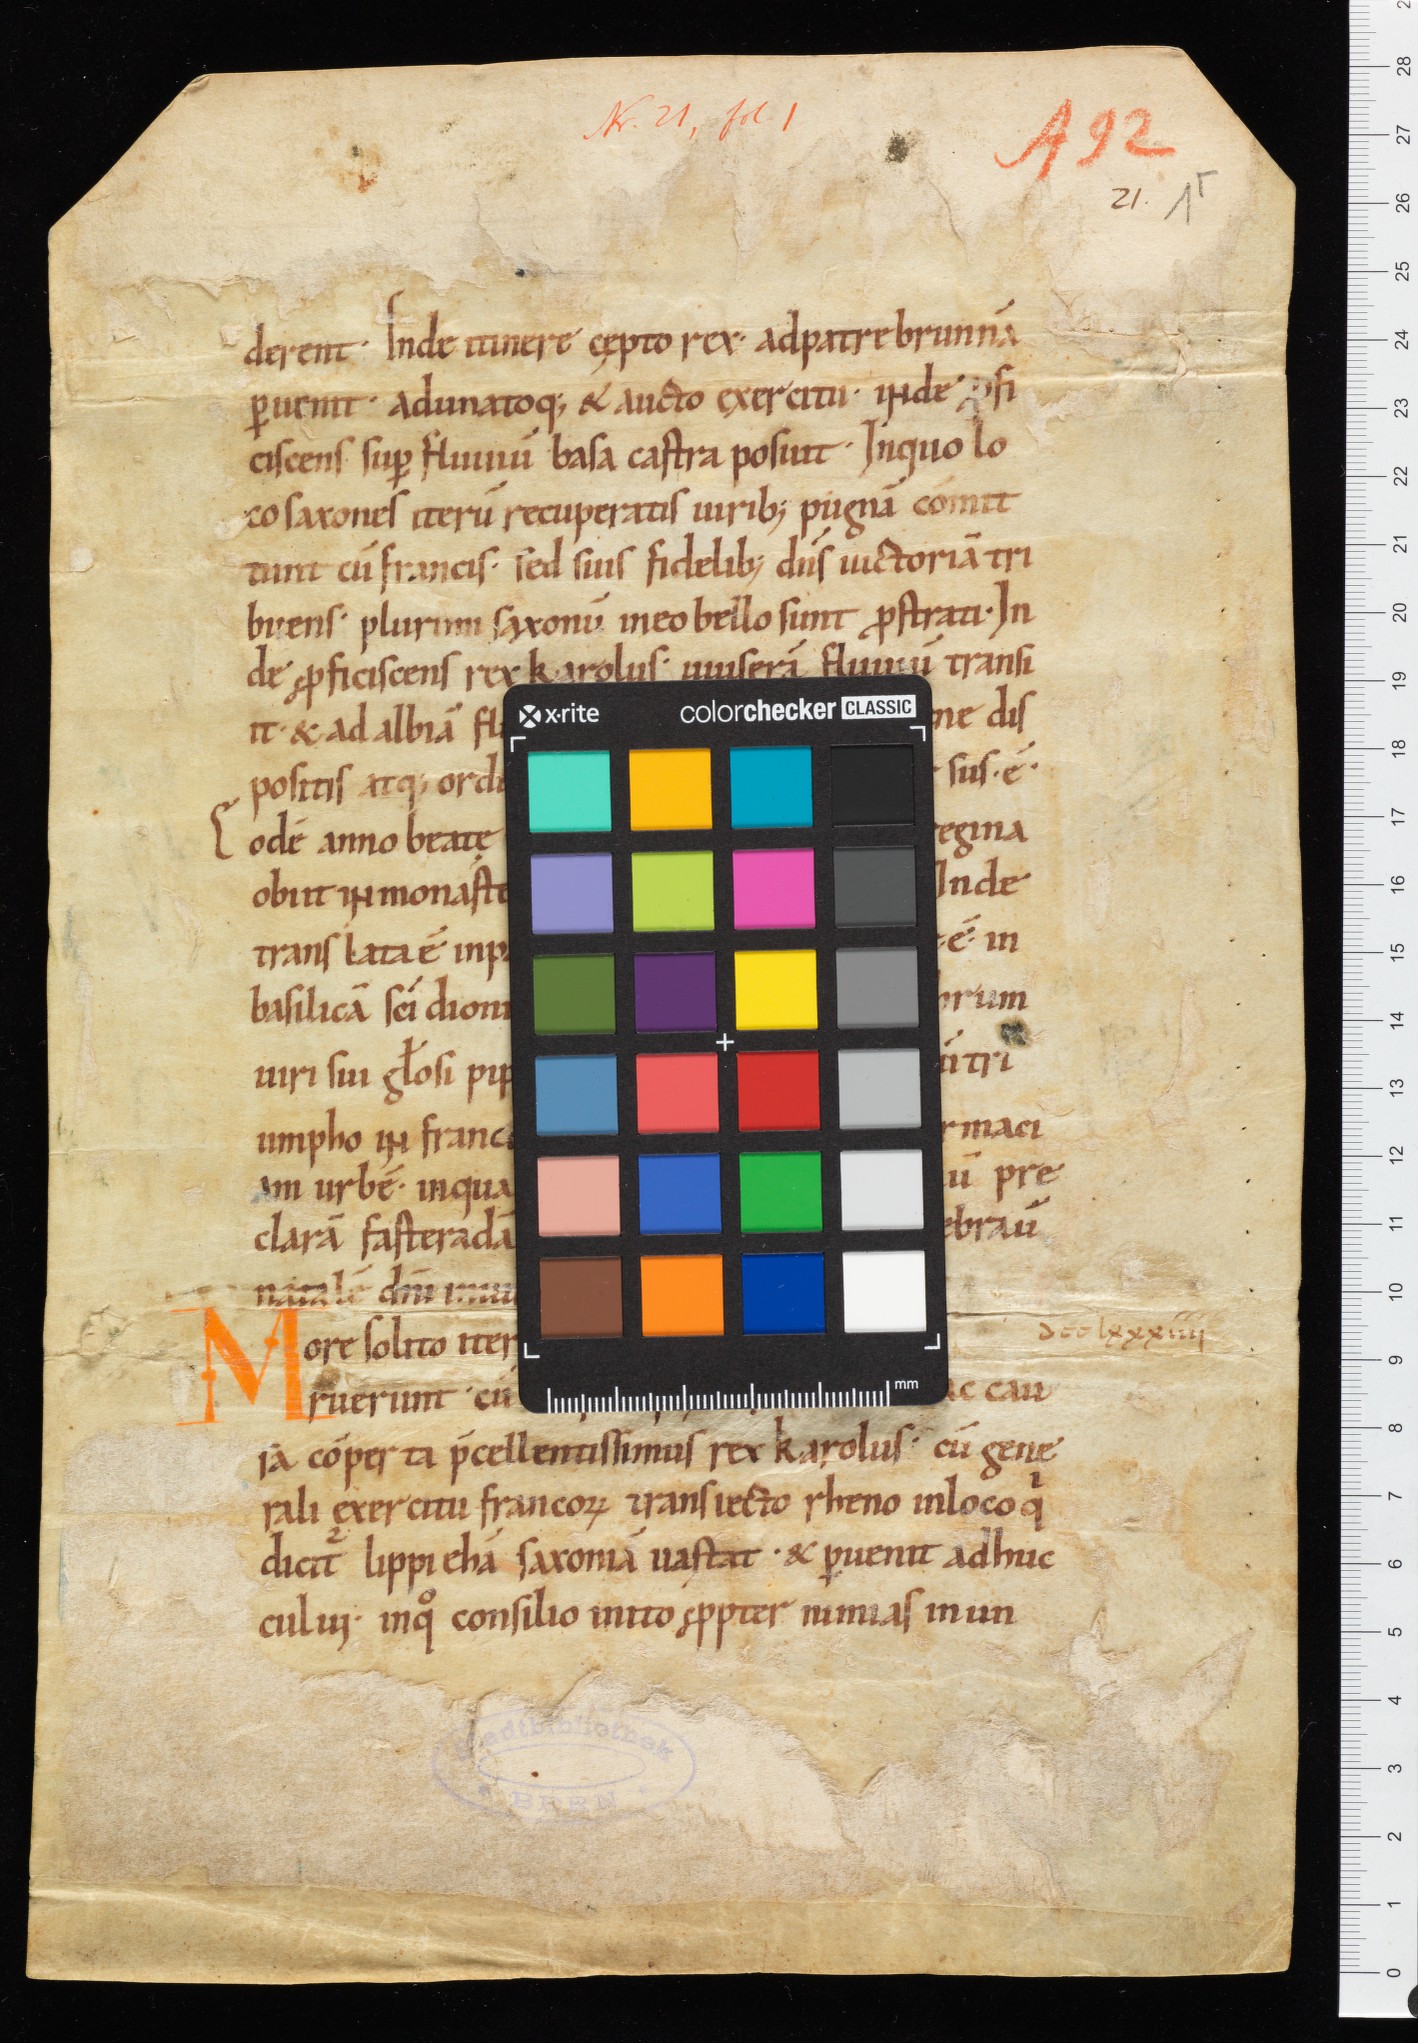 Nr. 21, fol. 1
A 92
21. 1r
derent· Inde itinere cępto rex· adpatrebrunnā
ꝑuenit· adunatoq; & aucto exercitu· inde ꝓfi
ciscens suꝑ fluuiū basa castra posuit· Inquo lo
co saxones iterū recuperatis uirib; pugnā cōmit
tunt cū francis· sed suis fidelib; dn̄s uictoriā tri
buens· plurimi saxonū ineobello sunt ꝓstrati· In
de ꝓficiscens rex karolus· uuiserā fluuiū transi
it· & ad albiā flu ne dis
positis atq; ordi sus·ē·
Eodē anno beatę regina
obiit inmonaste Inde
translata ē inp ē· in
basilicā sc̄i dioni orum
uiri sui głosi pip tri
umpho in franc rmaci
am urbē· inqua ū pre
clarā fasteradā ebrauī
natalē dn̄i
More solito iter dcclxxxiiii
ruerunt· cū ac cau
sā cōperta p̄cellentissimus rex karolus· cū gene
rali exercitu francoꝝ transiecto rheno inloco q̄i
dicit̄ lippiehā saxoniā uastat· & ꝑuenit adhuc
culuj· inq̊ consilio inito ꝓpter nimias inun
Stadtbibliothek
BERN
x·rite colorchecker CLASSIC
mm
28
27
26
25
24
23
22
21
20
19
18
17
16
15
14
13
12
11
10
9
8
7
6
5
4
3
2
1
0